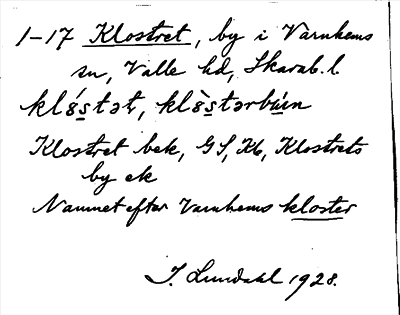 1-17 Klostret, by i Varnhems
sn, Valle hd, Skarab. l.
klóstət, klòstərbúin
Klostret bek, GS, Kb, Klostrets
by ek
Namnet efter Varnhems kloster
I. Lundahl 1928.